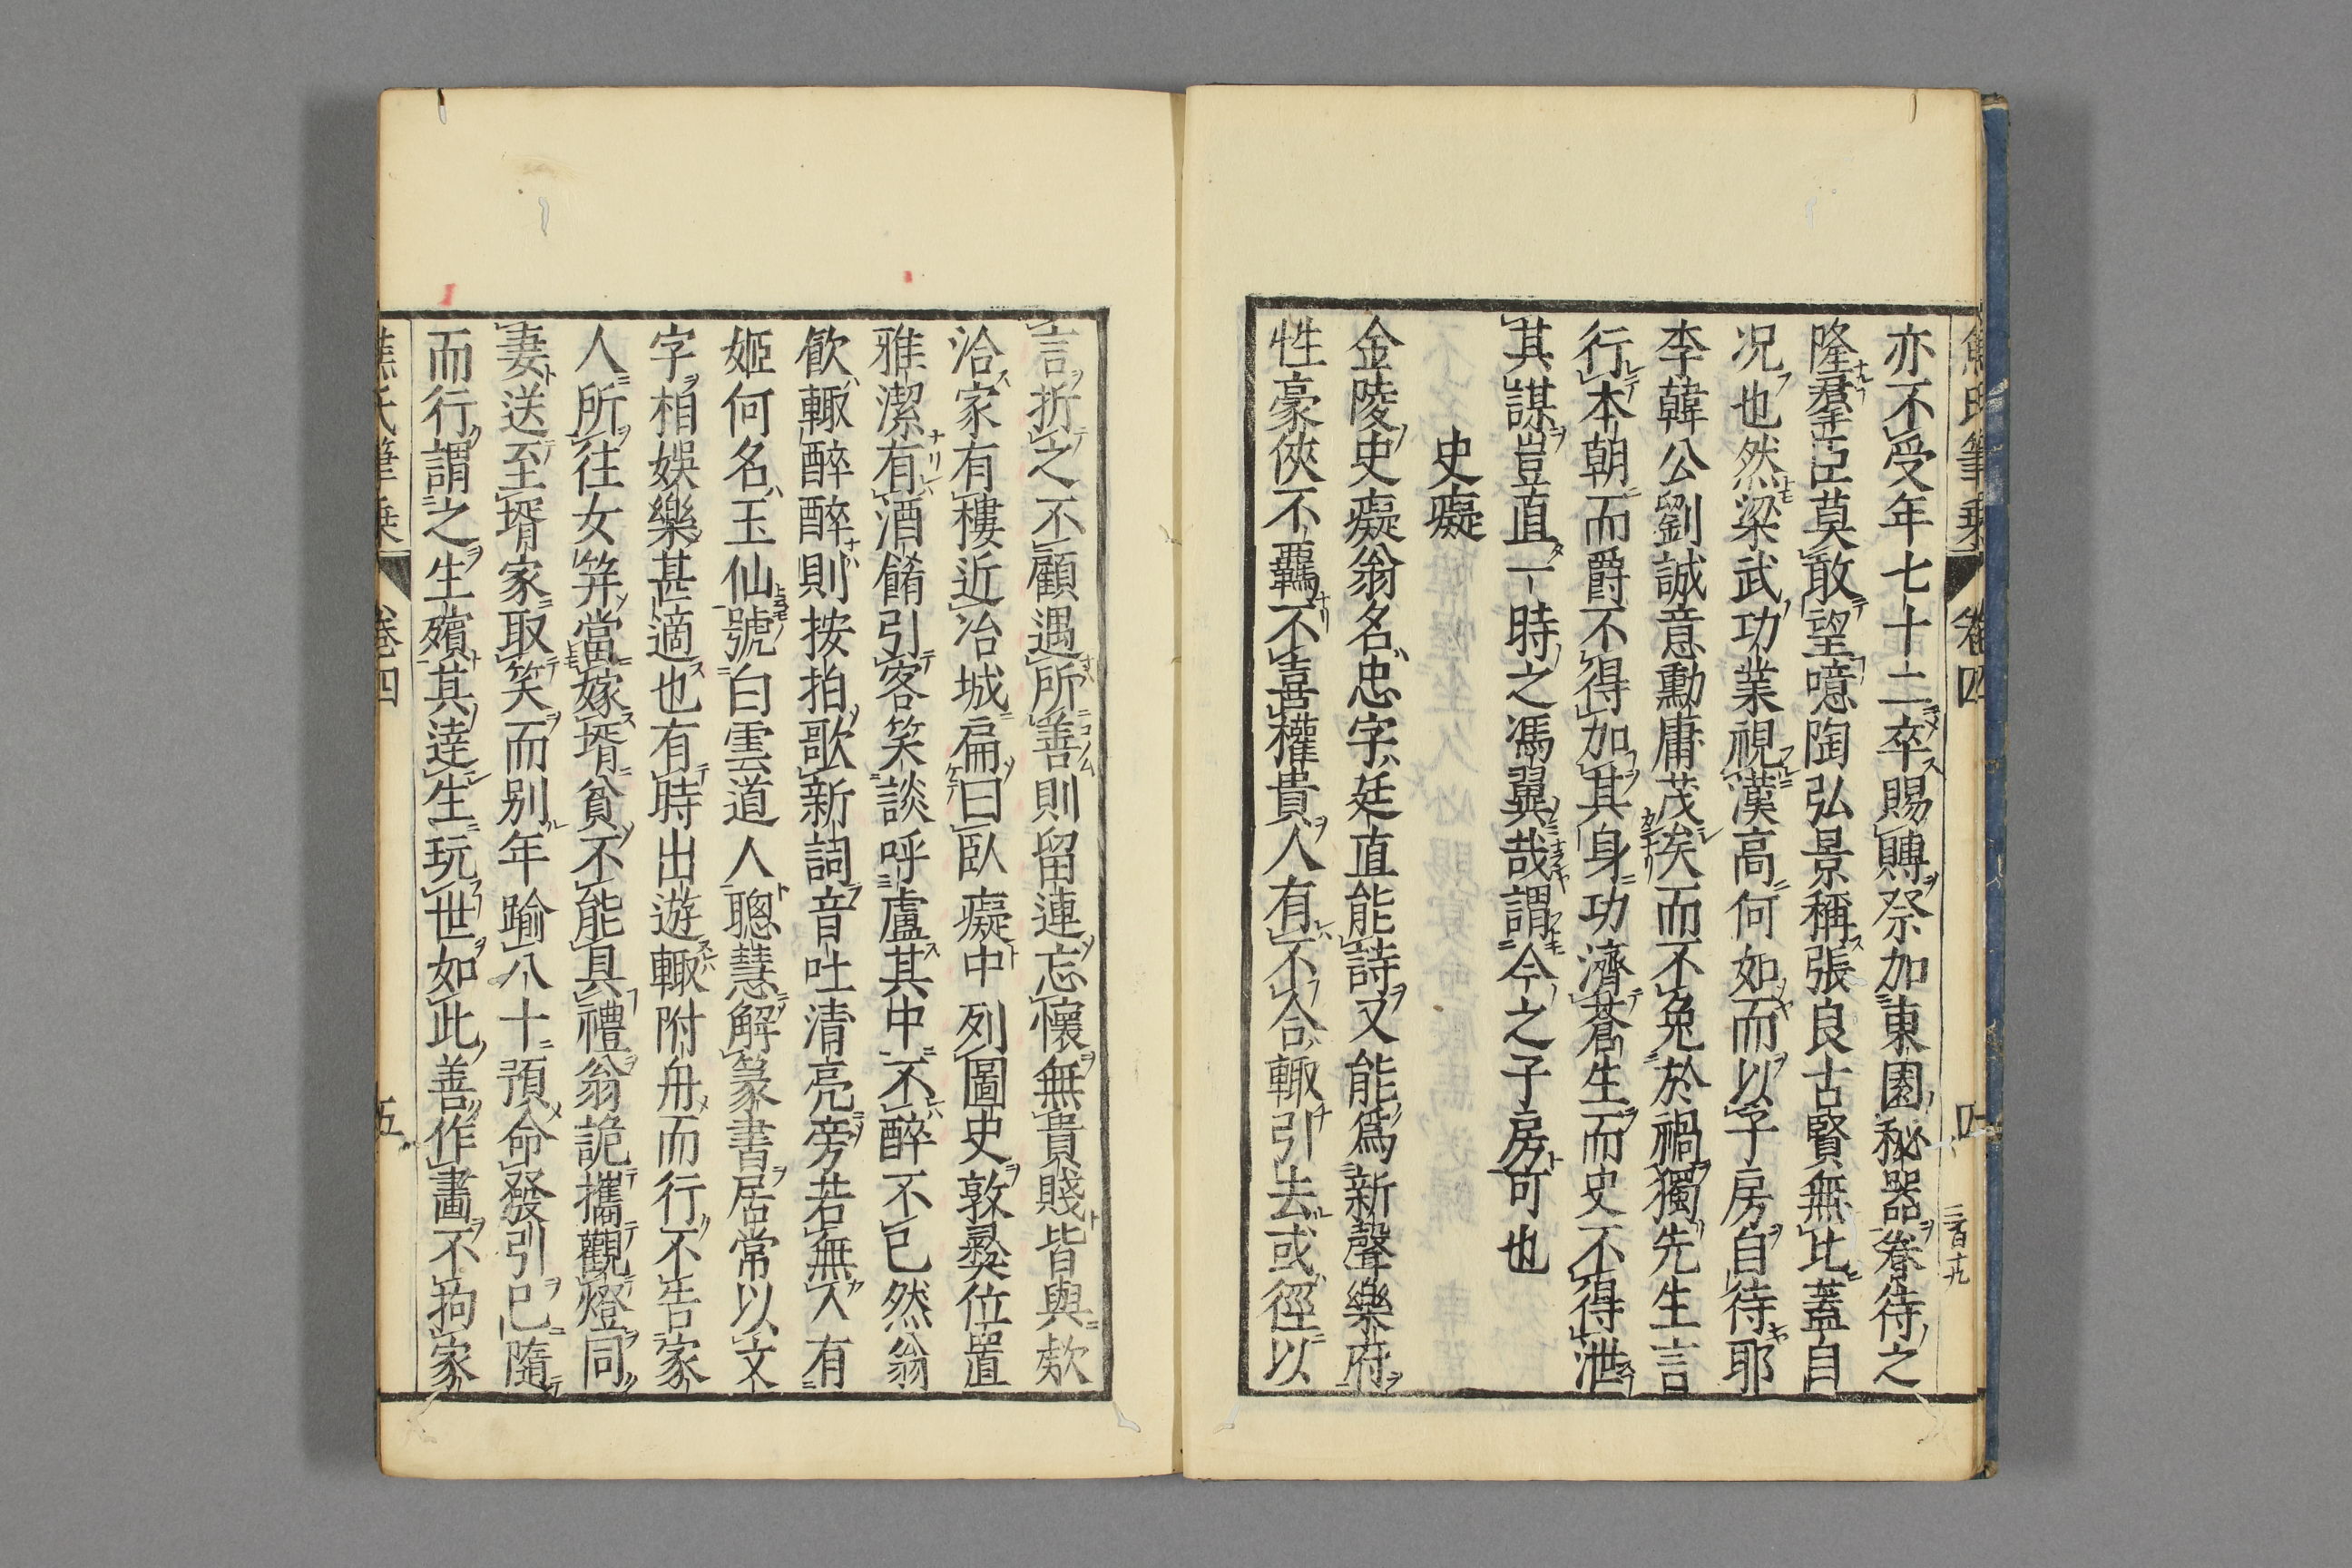 焦氏筆乘 卷四 四
亦不受年七十二卒賜賻祭加東園秘器眷待之
隆羣臣莫敢望噫陶弘景稱張良古賢無比蓋自
况也然梁武功業視漢高何如而以子房自待耶
李韓公劉誠意勳庸茂矣而不免於禍獨先生言
行本朝而爵不得加其身功濟蒼生而史不得泄
其謀豈直一時之馮翼哉謂今之子房可也
史癡
金陵史癡翁名忠字廷直能詩又能爲新聲樂府
性豪俠不羈不喜權貴人有不合輙引去或徑以
言折之不顧遇所善則留連忘懷無貴賤皆與欵
洽家有樓近冶城扁曰臥癡中列圖史敦彜位置
雅潔有酒餚引客笑談呼盧其中不醉不已然翁
飮輙醉醉則按拍歌新詞音吐清亮旁若無人有
姬何名玉仙號白雲道人聰慧解篆書居常以文
字相娛樂甚適也有時出遊輙附舟而行不告家
人所往女笄當嫁壻貧不能具禮翁詭攜觀燈同
妻送至壻家取笑而别年踰八十預命發引己隨
而行謂之生殯其達生玩世如此善作畫不拘家
焦氏筆乘 卷四 五